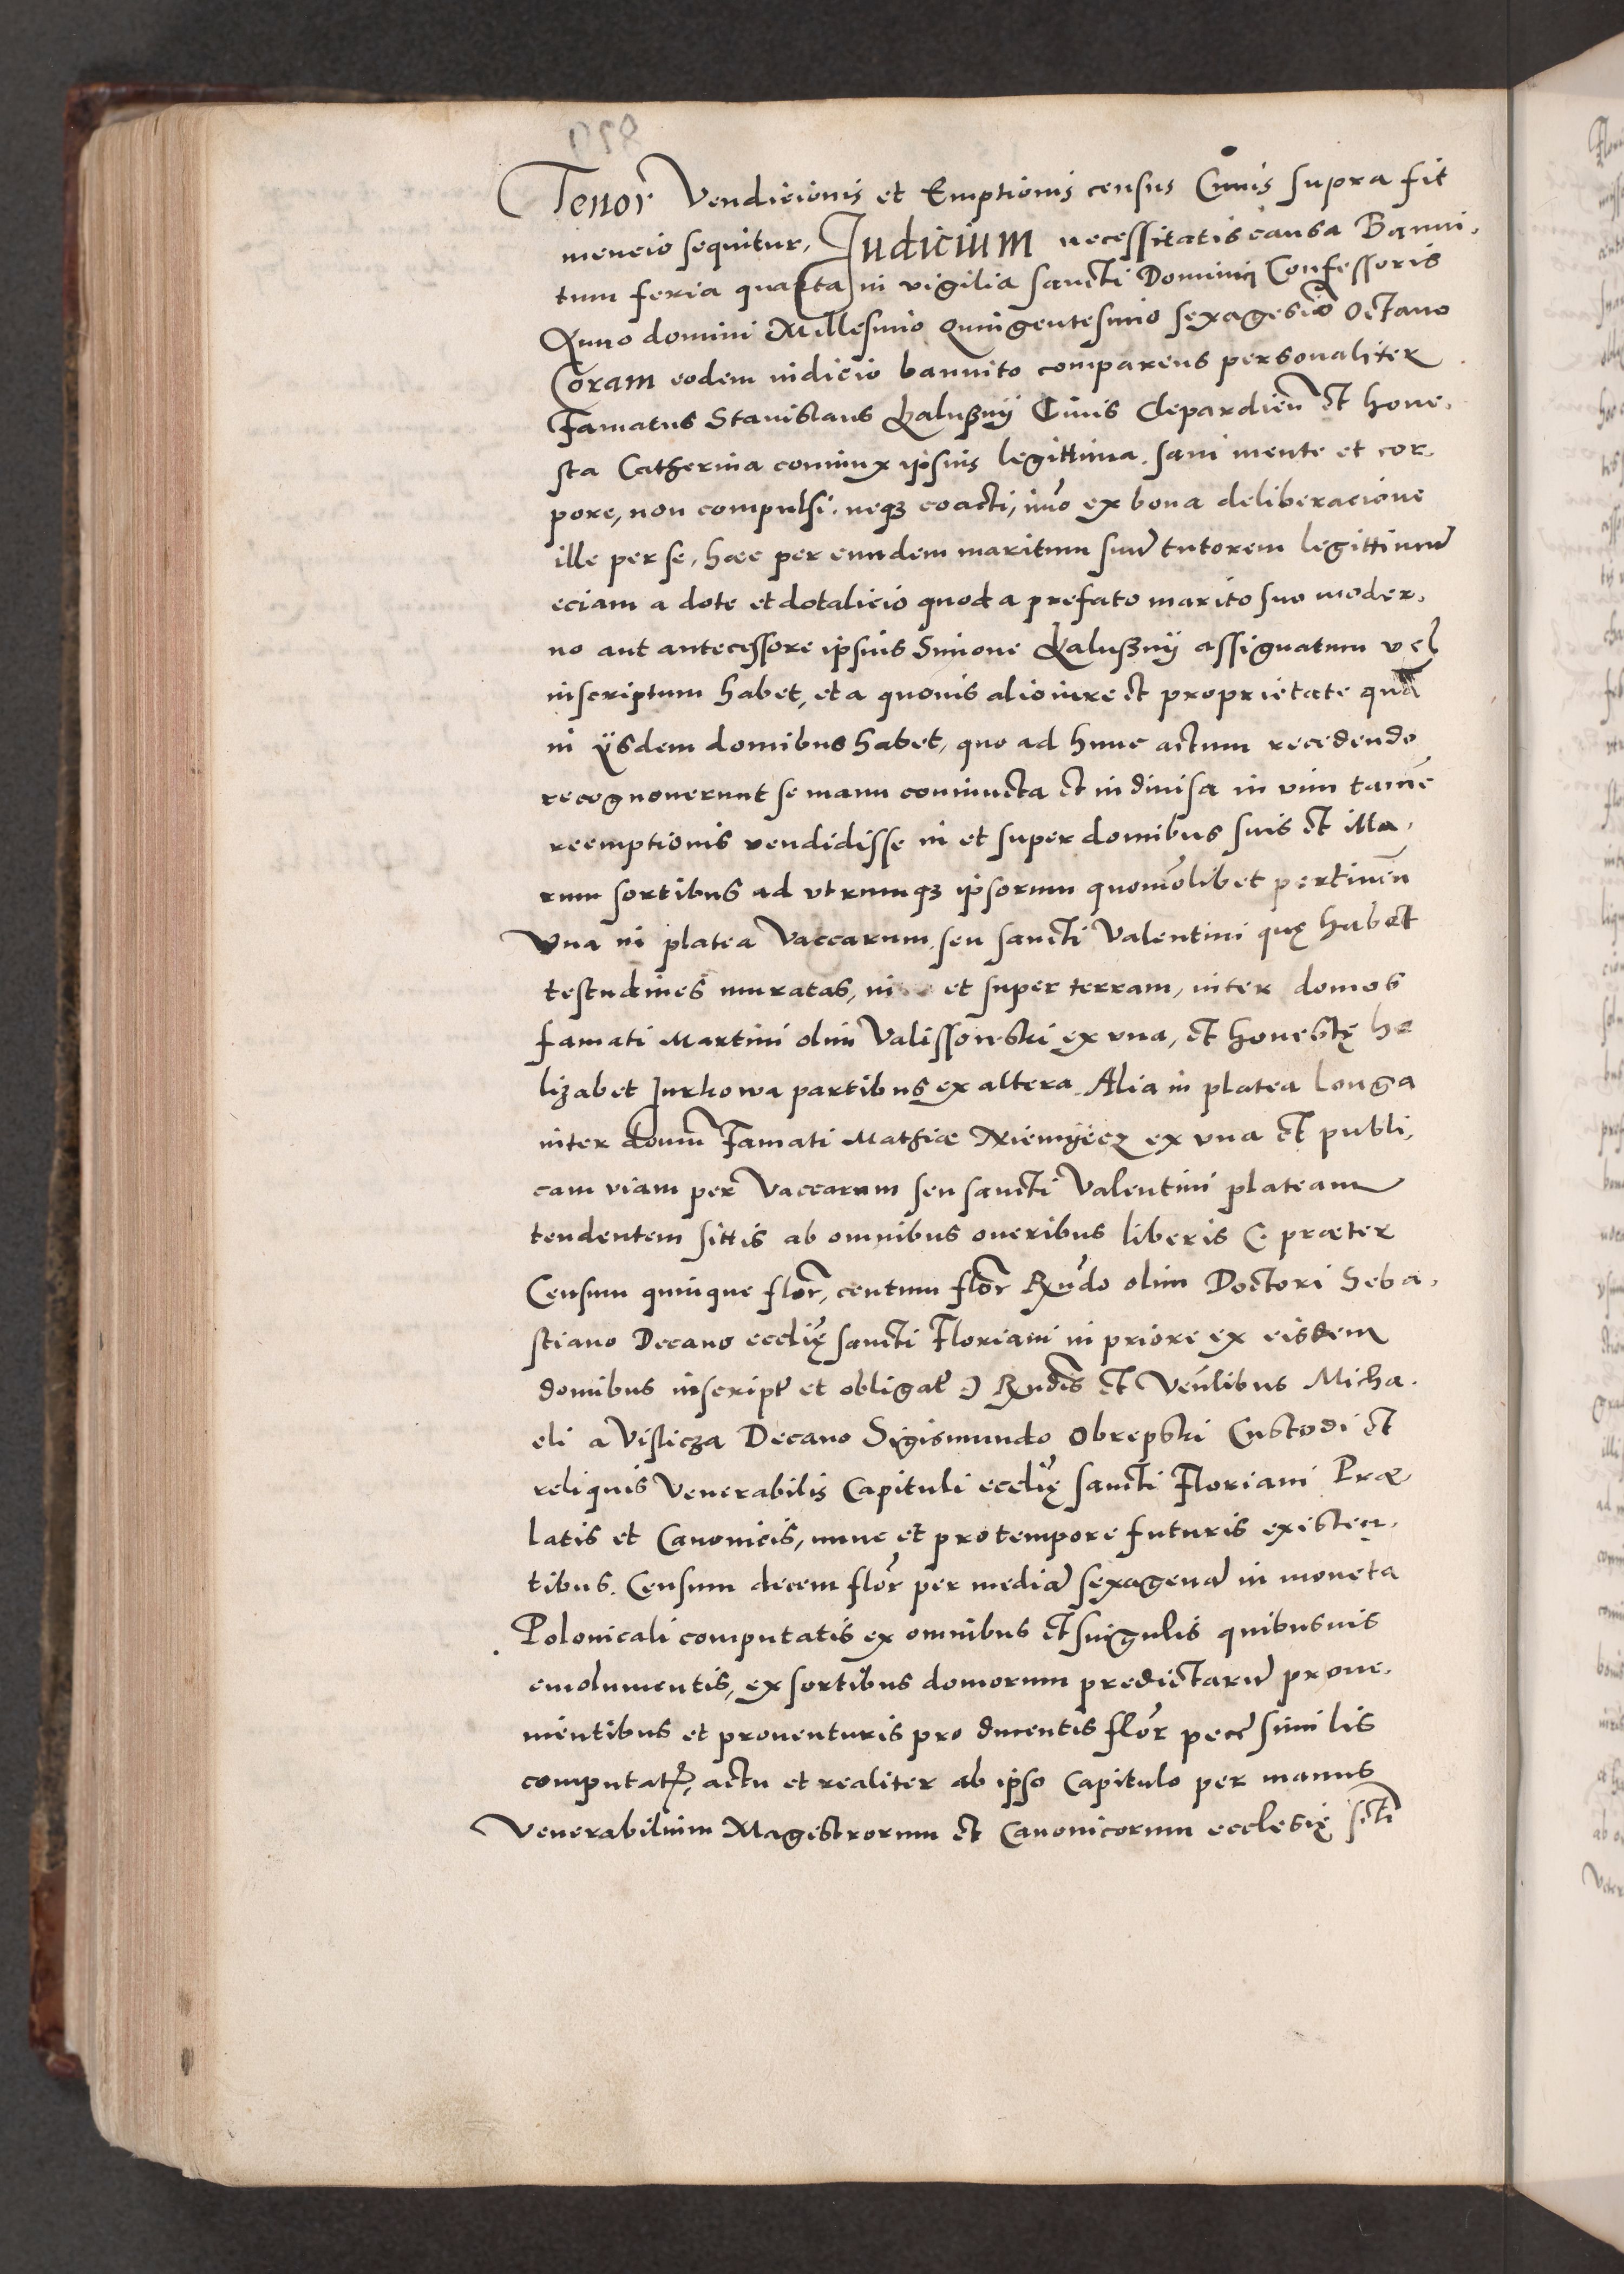 Tenor Vendicionis et Emptionis census Cuius supra fit
mencio sequitur, Judicium necessitatis causa Banni,
tum feria quarta in vigilia sancti Dominici Confessoris
Anno domini Millesimo Quingentesimo sexagesĩo Octauo
Coram eodem iudicio bannito comparens personaliter
Famatus Stanislaus Kalużnÿ Ciuis Clepardieñ et hone,
sta Catherina coniunx ipsius legittima. sani mente et cor,
pore, non compulsi. neqȝ coacti, im̃o ex bona deliberacione
ille per se, hæc per eundem maritum suũ tutorem legittimũ
eciam a dote et dotalicio quod a prefato marito suo moder,
no aut antecessore ipsius Simone Kalużnÿ assignatum vel
inscriptum habet, et a quouis alio iure et proprietate quã
in ijsdem domibus habet, quo ad hunc actum recedendo
recognouerunt se manu coniuncta et indiuisa in vim tamẽ
reemptionis vendidisse in et super domibus suis et illa,
rum sortibus ad vtrumqȝ ipsorum quom̃olibet pertineñ
Vna in platea Vaccarum seu sancti Valentini quę habet
testudines muratas, in et super terram, inter domos
famati Martini olim Valissowski ex vna, et honestę he
lizabet Jurkowa partibus ex altera. Alia in platea longa
inter domũ Famati Mathiæ Niemÿecz ex vna et publi,
cam viam per Vaccarum seu sancti Valentini plateam
tendentem sittis ab omnibus oneribus liberis (. præter
Censum quinque flor̃, centum flor̃ Rñdo olim Doctori Seba,
stiano Decano eccl̃ię sancti Floriani in priore ex eisdem
domibus inscript̃ et obligat̃ .) Rñdis et Veñlibus Micha.
eli a Vislicza Decano Sigismundo Obrepski Custodi et
reliquis Venerabilis Capituli eccl̃ię sancti Floriani Præ
latis et Canonicis, nunc et pro tempore futuris existen,
tibus. Censum decem flor̃ per mediã sexagenã in moneta
Polonicali computatis ex omnibus et singulis quibusuis
emolumentis, ex sortibus domorum predictarũ proue,
nientibus et prouenturis pro ducentis flor̃ pecc̃ similis
computatr̃, actu et realiter ab ipso Capitulo per manus
Venerabilium Magistrorum et Canonicorum ecclesię scti